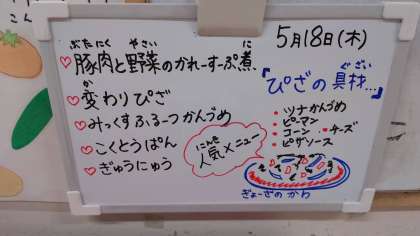 こん
5月18日(木)
ぶたにく やさい に
♡豚肉と野菜のかれーすーぷ煮
か
♡変わりぴざ
♡みっくすふるーつかんづめ
♡こくとうぱん
♡ぎゅうにゅう
にんき
人気メニュー
ぐざい
「ぴざの具材…」
・ツナかんづめ
・ピーマン
・コーン ・チーズ
・ピザソース
ぎょーざのかわ